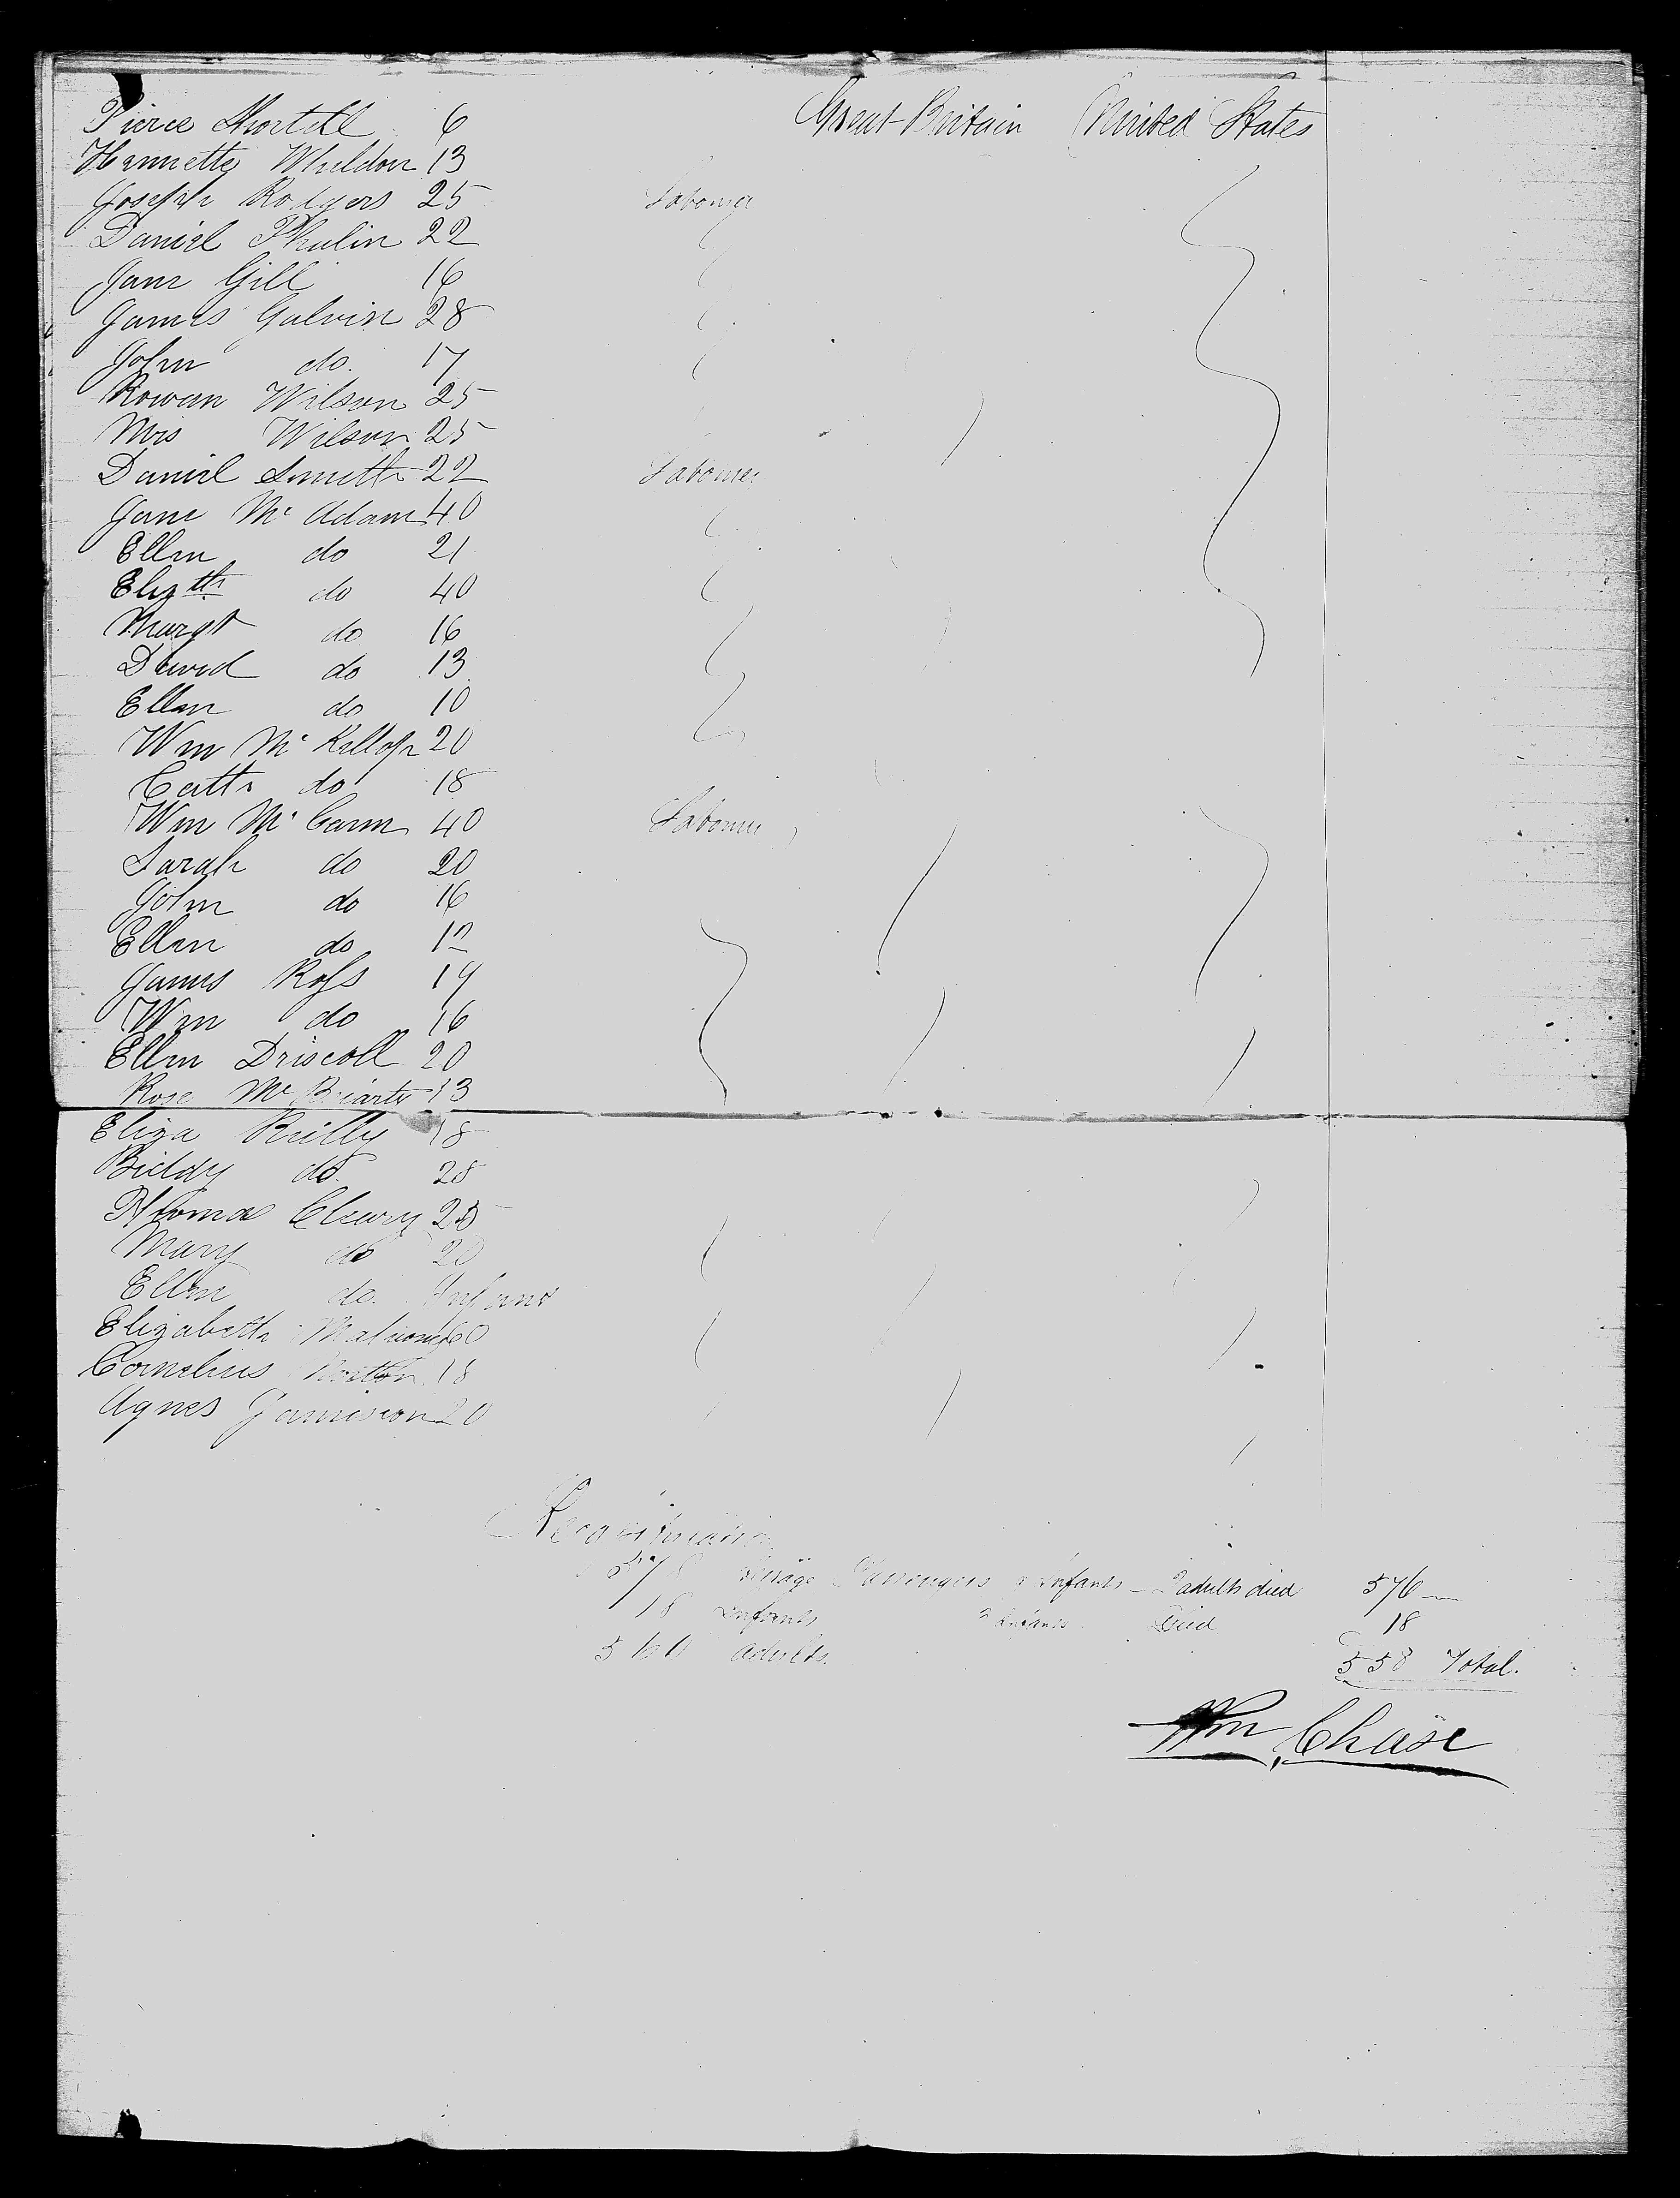 Pierce Shortell 6 Great Britain United States
Hannette Wheldon 13
Joseph Rodgers 25 Labourer
Daniel Phelin 22
Jane Gill 16
James Galvin 28
John do. 17
Rowan Wilson 25
Mrs Wilson 25
Daniel Smith 22 Labourer
Jane Mc Adam 40
Ellen do 21
Elizth do 40
Margt do 16
David do 13
Ellen do 10
Wm Mc Killop 20
Cath do 18
Wm Mc Cann 40 Labourer
Sarah do 20
John do 16
Ellen do 12
James Ross 19
Wm do 16
Ellen Driscoll 20
Rose Mc 13
Eliza Reilly 18
Biddy do. 28
Thomas Cleary
Mary do 20
Ellen do. Infant
Elizabeth 60
Cornelius 18
Agnes Jamieson 20
Recapitulation
578 Steerage Passengers & Infants - 2 adults died 576
18 Infants Infants Died 18
560 adults. 558 Total.
Wm Chase